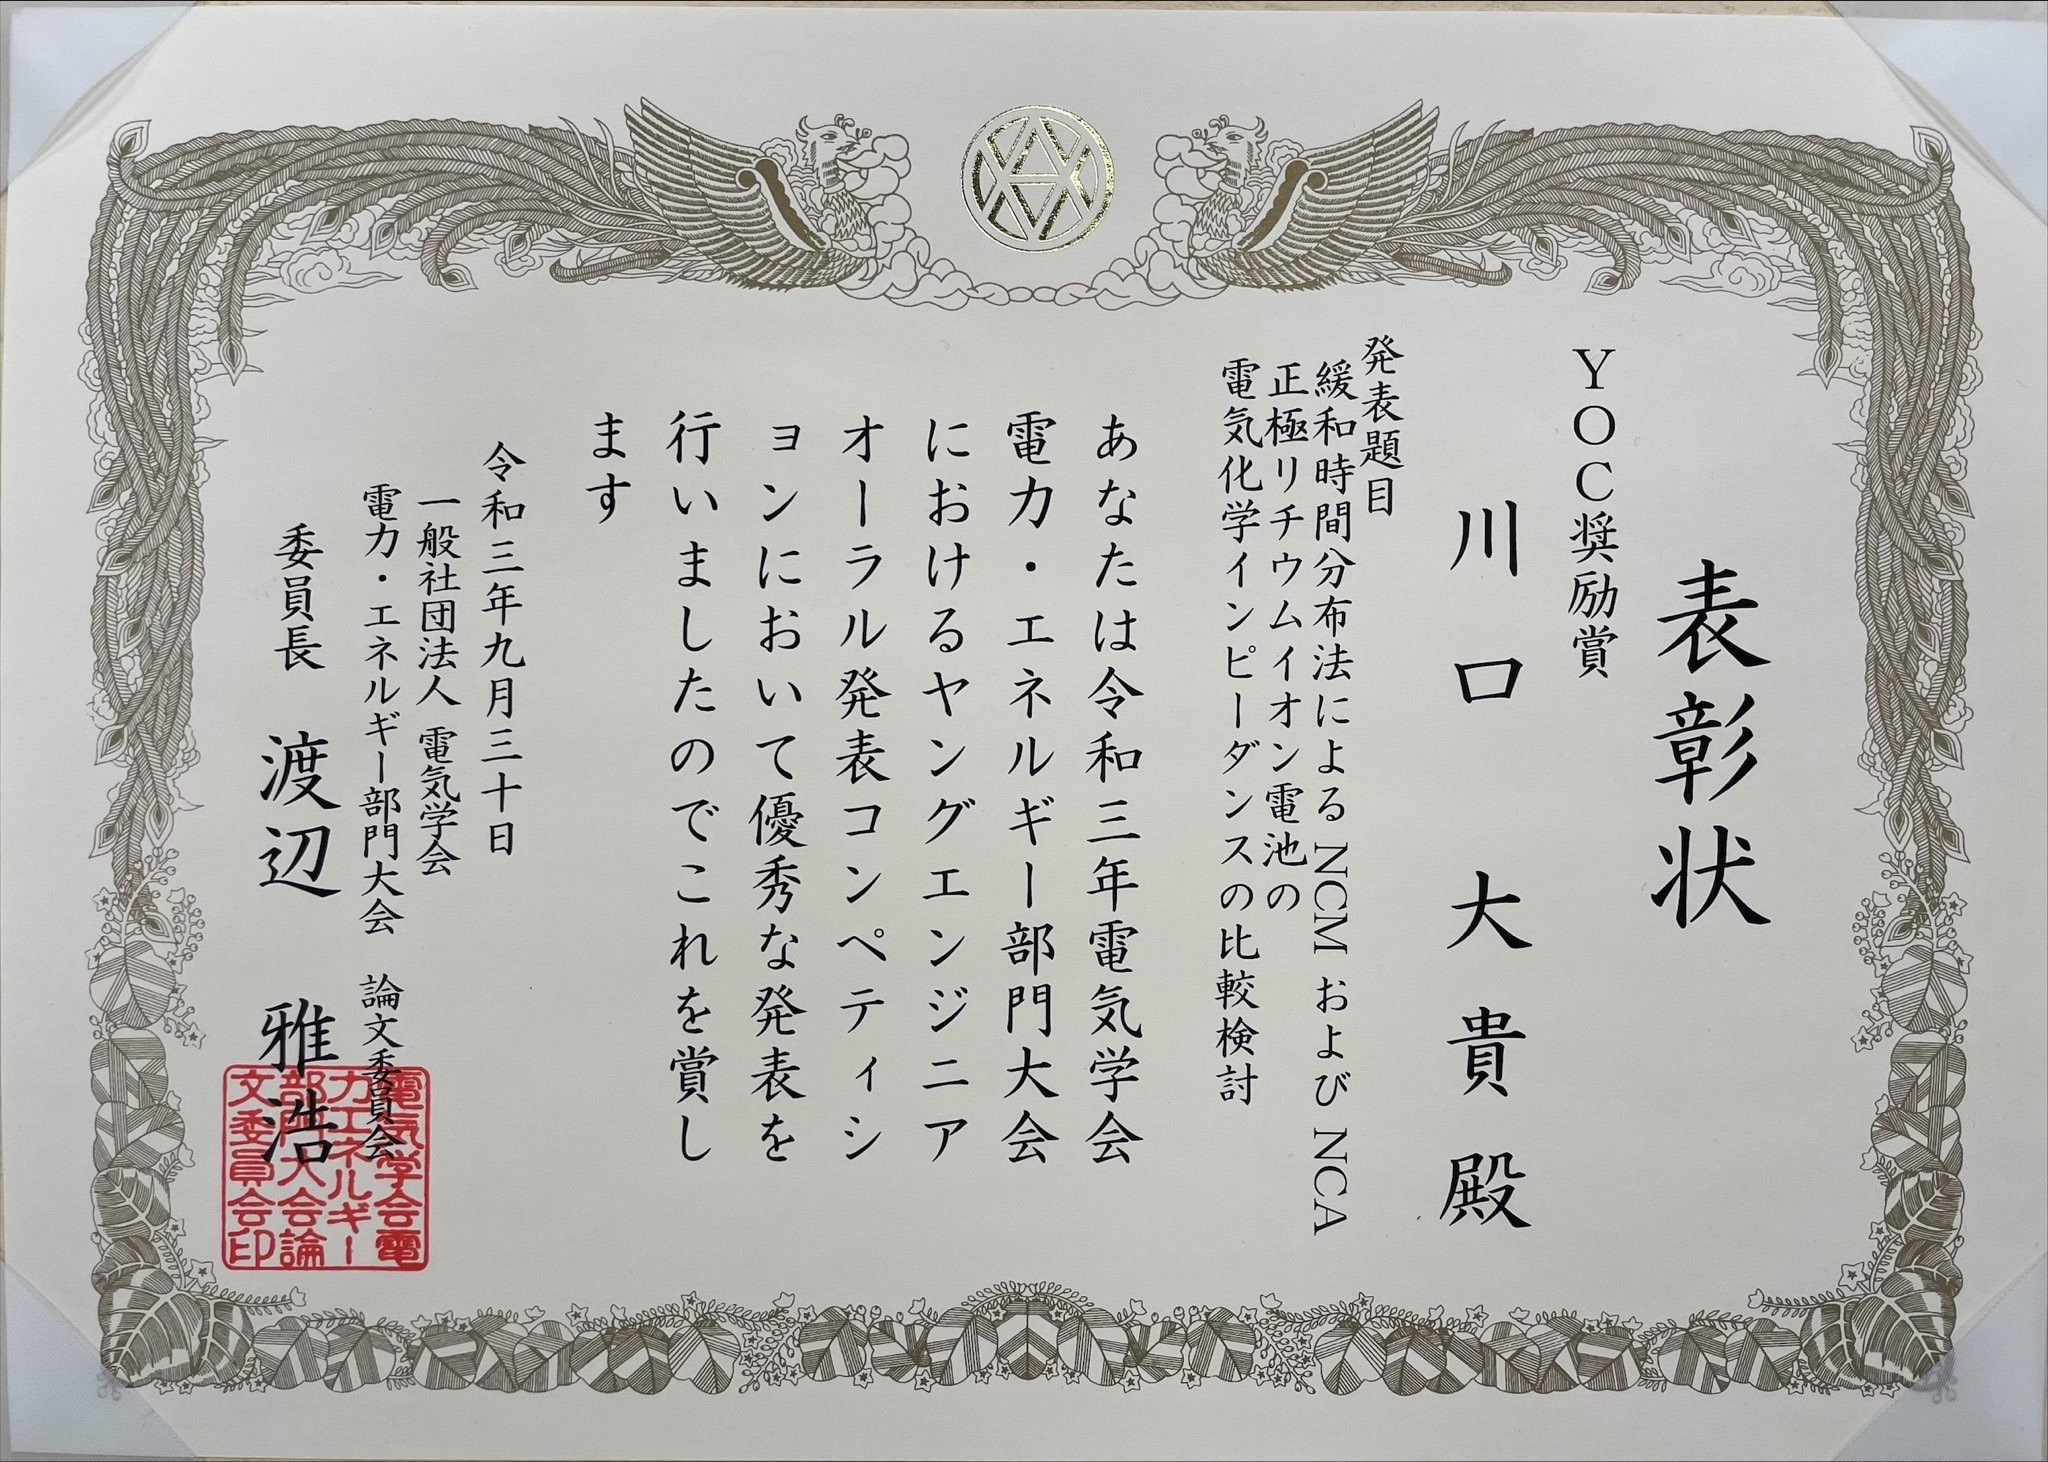 表彰状
YOC奨励賞
川口大貴殿
発表題目
緩和時間分布法による NCM および NCA
正極リチウムイオン電池の
電気化学インピーダンスの比較検討
あなたは令和三年電気学会
電力・エネルギー部門大会
におけるヤングエンジニア
オーラル発表コンペティシ
ョンにおいて優秀な発表を
行いましたのでこれを賞し
ます
令和三年九月三十日
一般社団法人 電気学会
電力・エネルギー部門大会 論文委員会
委員長 渡辺 雅浩
電気学会電
力エネルギー
部門大会論
文委員会印